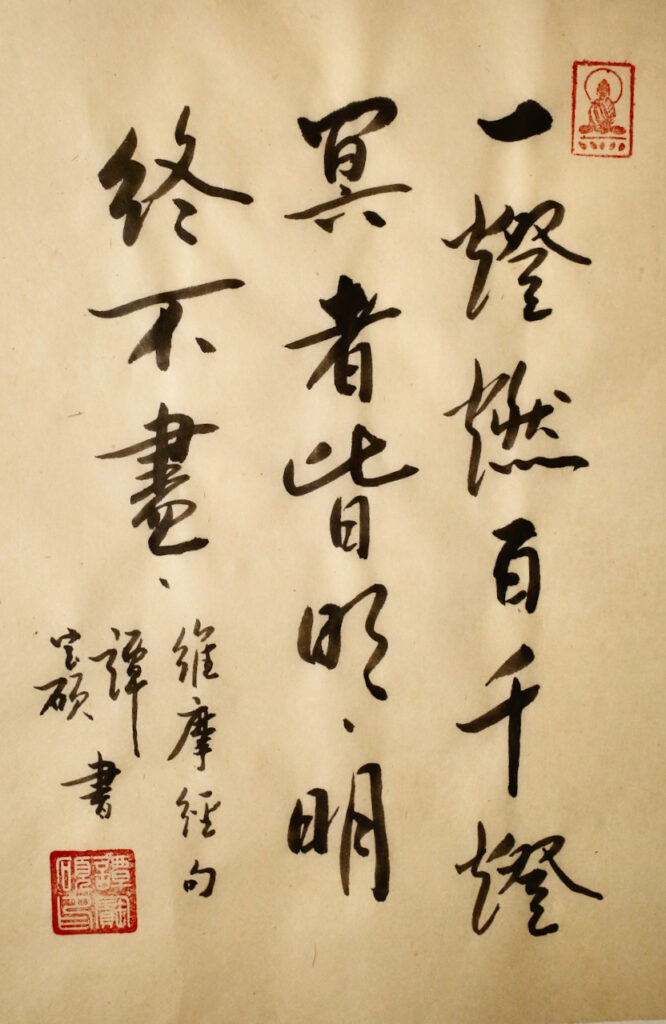 一燈燃百千燈
冥者皆明、明
終不盡、
維摩經句
譚宝硕書
譚寶碩印